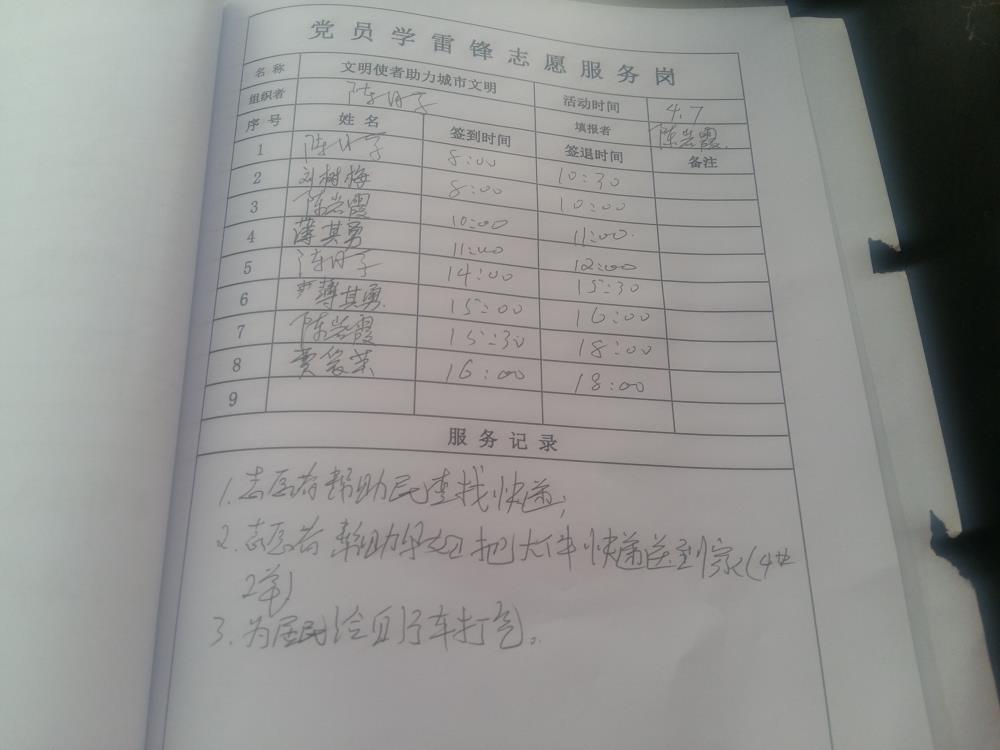 党员学雷锋志愿服务岗
名称 文明使者助力城市文明 活动时间 4.7
组织者 陈丹子 填报者 陈岩霞
序号 姓名 签到时间 签退时间 备注
1 陈丹子 8:00 10:30
2 刘树梅 8:00 10:00
3 陈岩霞 10:00 11:00
4 薄其勇 11:00 12:00
5 陈丹子 14:00 15:30
6 薄其勇 15:00 16:00
7 陈岩霞 15:30 18:00
8 贾爱荣 16:00 18:00
9
服务记录
1.志愿者帮助民查找快递;
2.志愿者帮助 把大件快递送到家(4#
2单)
3.为居民给自行车打气。